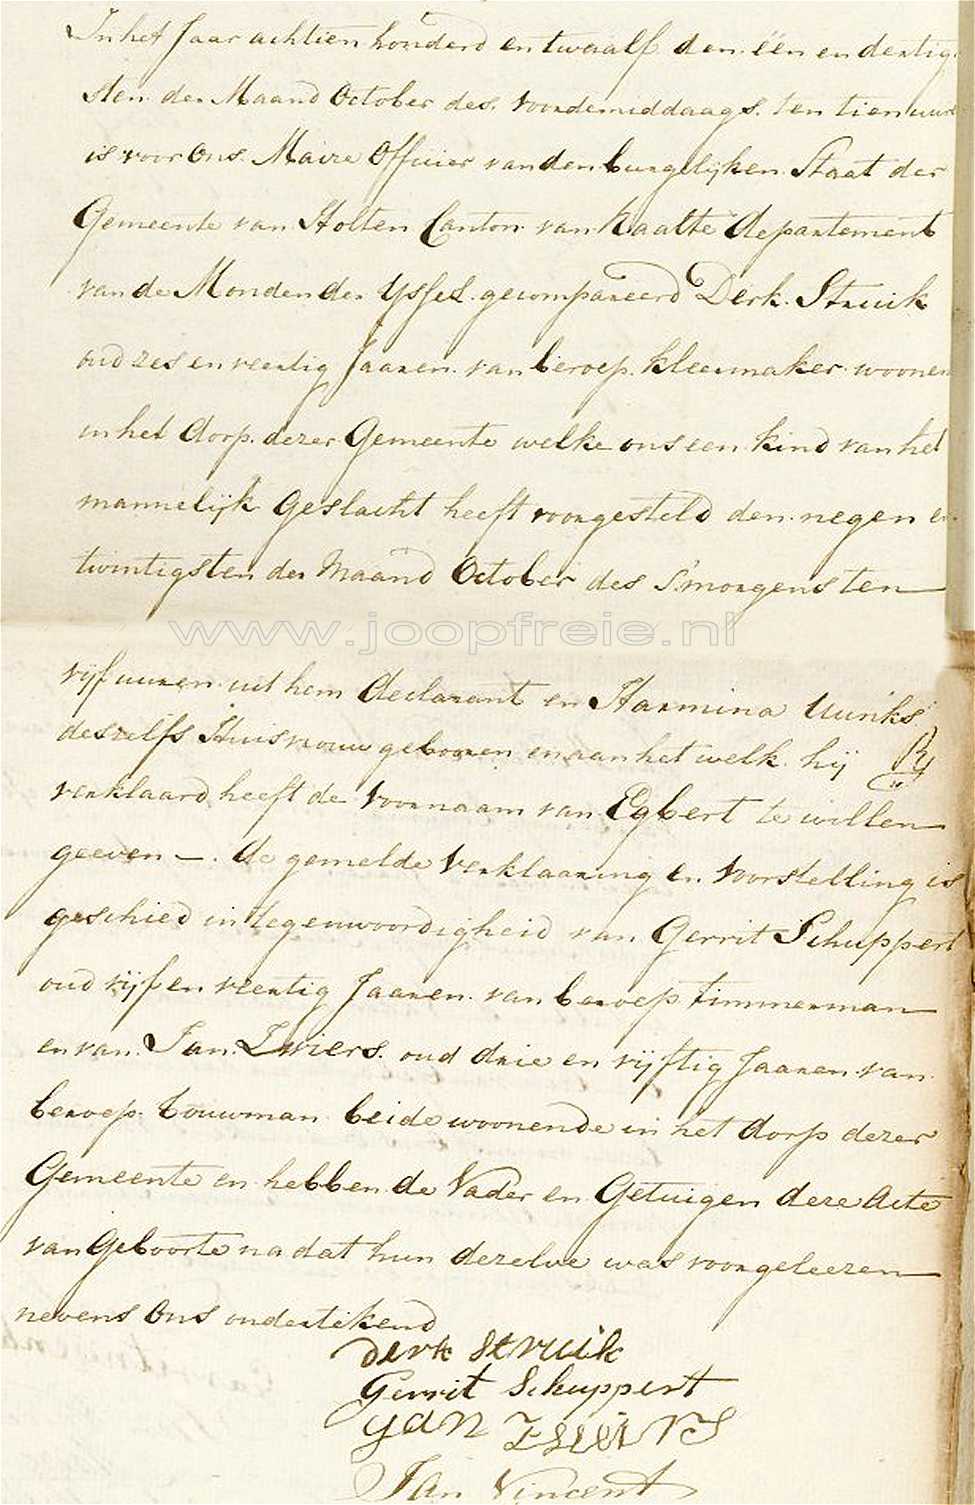 In het Jaar achtien honderd en twaalf den één en dertig
sten der Maand October des voordemiddaags ten tien uure
is voor Ons Maire Officier van den burgelijken Staat der
Gemeente van Holten Canton van Raalte departement
van de Monden der Yssel gecompareerd Derk Struik
oud zes en veertig Jaaren van beroep kleermaker woonen
in het dorp dezer Gemeente welke ons een kind van het
mannelijk Geslacht heeft voorgesteld den negen en
twintigsten der Maand October des S'morgens ten
www.joopfreie.nl
vijf uuren uit hem declarant en Harmina Uunks
deszelfs Huisvrouw gebooren en aan het welk hij
verklaard heeft de voornaam van Egbert te willen
geeven —. de gemelde verklaaring en voorstelling is
geschied in tegenwoordigheid van Gerrit Schuppert
oud vijf en veertig Jaaren van beroep timmerman
en van Jan Zwiers oud drie en vijftig Jaaren van
beroep bouwman beide woonende in het dorp dezer
Gemeente en hebben de Vader en Getuigen deze Acte
van Geboorte na dat hun dezelve was voorgeleezen
nevens Ons ondertekend
derk struik
Gerrit Schuppert
Jan Zwiers
Jan Vincent